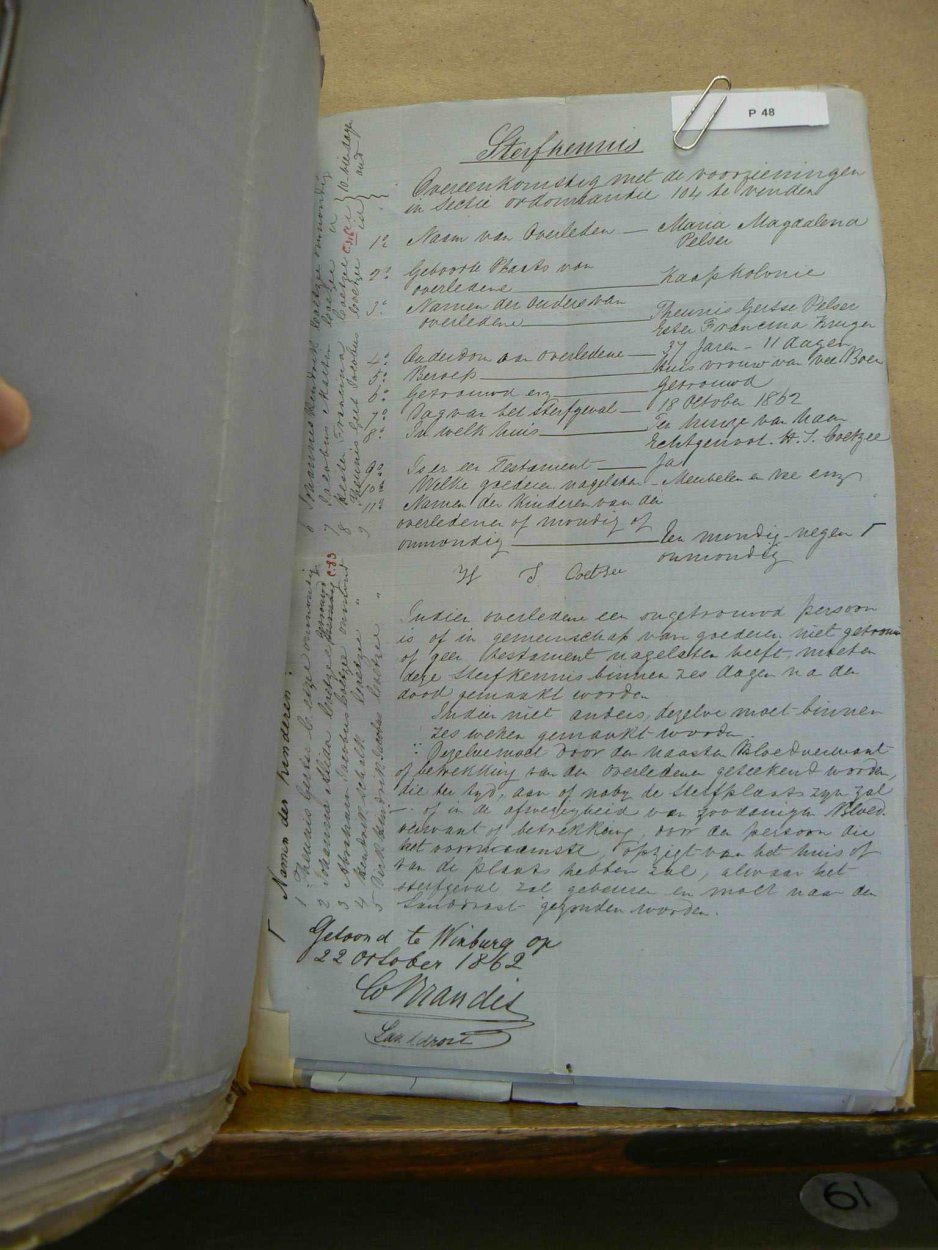 P 48
Sterfkennis
Overeenkomstig met de voorzieningen
in Sectie ordonnantie 104 te vinden
1e Naam van Overleden — Maria Magdalena
Pelser
2e Geboorte Plaats van
overledene — Kaapkolonie
3e Namen der Ouders van
overledene — Theunis Gertse Pelser
Ester Francina Kruger
4e Ouderdom van overledene — 37 Jaren - 11 dagen
5e Beroep — Huis vrouw van vee Boer
6e Getrouwd enz — Getrouwd
7e Dag van het Sterfgeval — 18 October 1862
8e In welk huis — Ten huize van haar
Echtgenoot. H. J. Coetzee
9e Is er een Testament — Ja
10e Welke goederen nagelaten — Meubelen en vee enz
11e Namen der Kinderen van de
overledenen of mondig of
onmondig — Een mondig negen
onmondig
H J Coetzee
Indien overledene een ongetrouwd persoon
is of in gemeenschap van goederen niet getrouwd
of geen testament nagelaten heeft, moeten
deze Sterfkennis binnen zes dagen na den
dood gemaakt worden
Indien niet anders, dezelve moet binnen
zes weken gemaakt worden
Dezelve moet door den naasten Bloedverwant
of betrekking van den Overledenen geteekend worden,
die ter tyd, aan of naby de Sterfplaats zyn zal
— of in de afwezigheid van zoodanigen Bloed
verwant of betrekking, door den persoon die
het voornaamste opzigt van het huis of
van de plaats hebben zal, alwaar het
sterfgeval zal gebeuren en moet naar den
Landdrost gezonden worden.
Getoond te Winburg op
22 October 1862
Co Brandis
Landdrost
Namen der kinderen:
1 Theunis Gerts Coetzee onmondig
2 Johanna Coetzee
3 Abraham Jacobus Coetzee onmondig
4 Hendrik Schalk Coetzee "
5 Dirk Hendrik Jacobus Coetzee "
6 Johannes Hendrik Coetzee onmondig
7 Jacobus Coetzee
8 Hester Francina Coetzee
9 Theunis Gert Jacobus Coetzee
10 dagen
oud
61